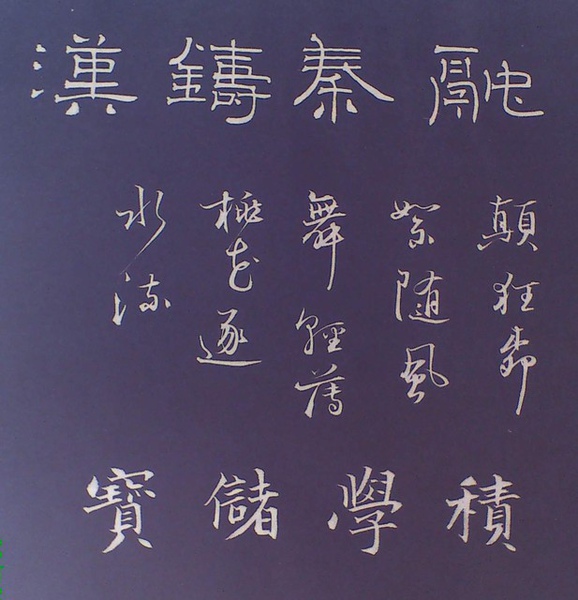 融秦鑄漢
顛狂柳
絮随風
舞輕薄
桃花逐
水流
積學儲寶